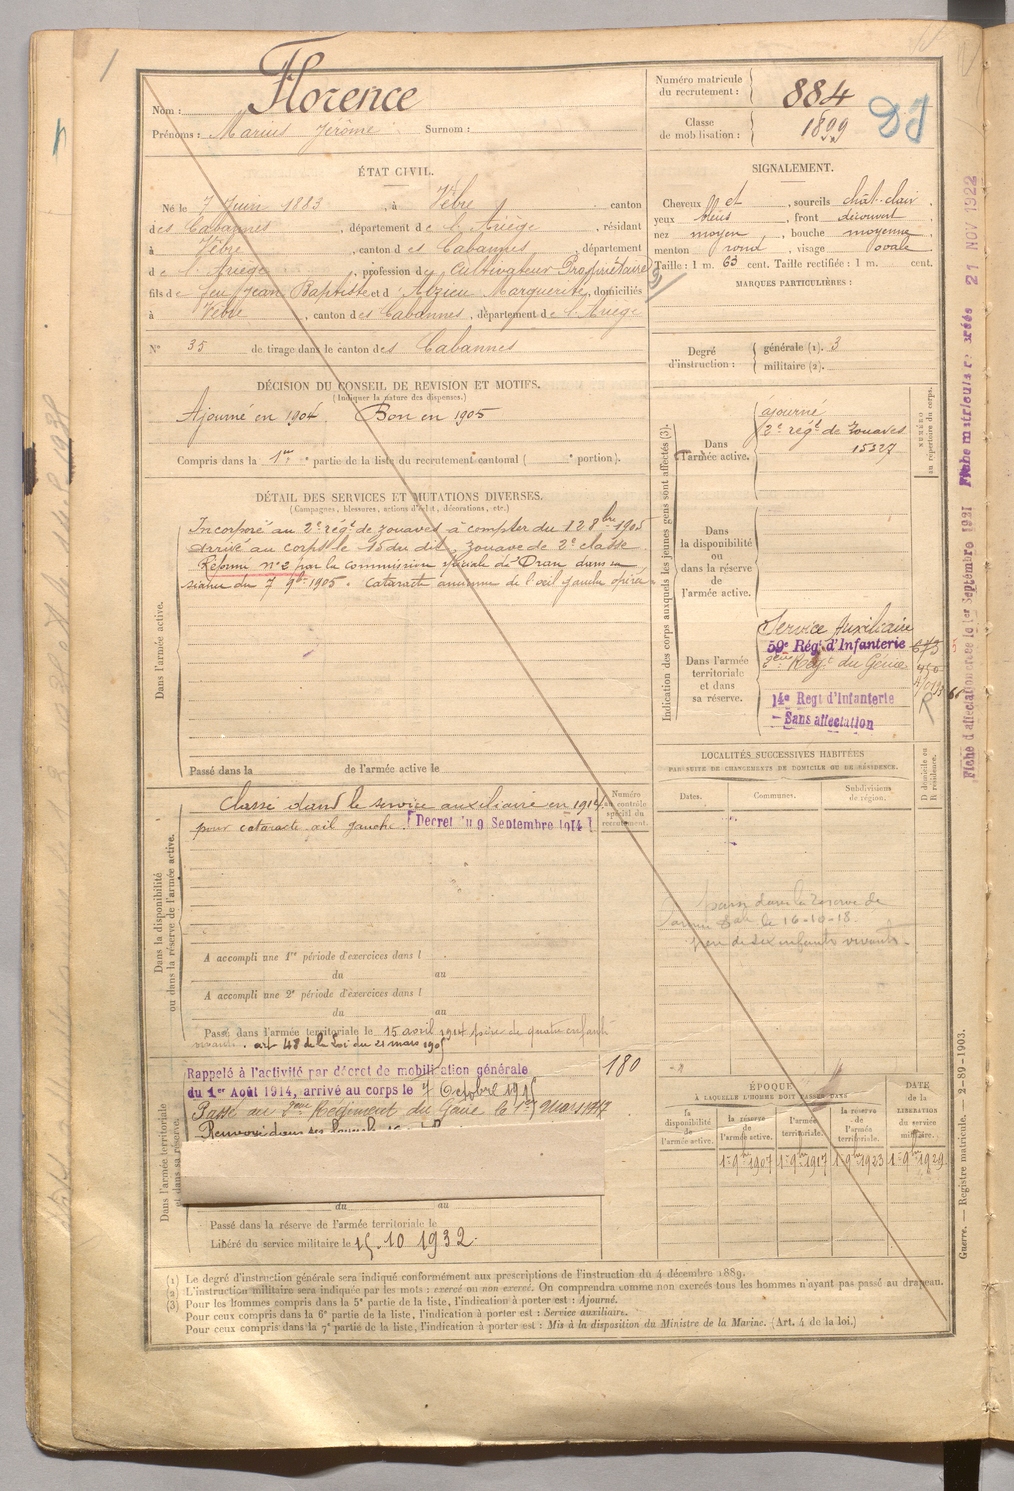 1
Nom : Florence
Prénoms : Marius Jérôme Surnom :
Numéro matricule du recrutement : 884
Classe de mobilisation : 1899
DJ
ÉTAT CIVIL.
Né le 7 Juin 1883, à Vèbre canton
des Cabannes, département de l'Ariège, résidant
à Vèbre, canton des Cabannes, département
de l'Ariège, profession de Cultivateur Propriétaire
fils de feu Jean Baptiste et d'Alzieu Marguerite, domiciliés
à Vèbre, canton des Cabannes, département de l'Ariège
N° 35 de tirage dans le canton des Cabannes
SIGNALEMENT.
Cheveux et, sourcils chât-clair,
yeux bleus, front découvert,
nez moyen, bouche moyenne,
menton rond, visage ovale
Taille : 1 m. 63 cent. Taille rectifiée : 1 m. cent.
MARQUES PARTICULIÈRES :
Degré d'instruction : générale (1). 3
militaire (2).
DÉCISION DU CONSEIL DE REVISION ET MOTIFS.
(Indiquer la nature des dispenses.)
Ajourné en 1904. Bon en 1905
Compris dans la 1re partie de la liste du recrutement cantonal ( portion).
DÉTAIL DES SERVICES ET MUTATIONS DIVERSES.
(Campagnes, blessures, actions d'éclat, décorations, etc.)
Dans l'armée active.
Incorporé au 2e régt de zouaves à compter du 12 8bre 1905
arrivé au corps le 15 du dit, zouave de 2e classe
Réformé n° 2 par la commission spéciale d'Oran dans sa
séance du 7 9bre 1905. Cataracte ancienne de l'œil gauche opérée
Passé dans la de l'armée active le
Indication des corps auxquels les jeunes gens sont affectés (3).
Dans l'armée active.
ajourné
2e régt de Zouaves
15327
NUMÉRO au répertoire du corps.
Dans la disponibilité ou dans la réserve de l'armée active.
Dans l'armée territoriale et dans sa réserve.
Service Auxiliaire
59e Régt d'Infanterie
2ème Régt du Génie
14e Regt d'Infanterie
Sans affectation
R
Fiche d'affectation créée le 1er Septembre 1921 Fiche matricule 21 NOV 1922
LOCALITÉS SUCCESSIVES HABITÉES
PAR SUITE DE CHANGEMENTS DE DOMICILE OU DE RÉSIDENCE.
Dates. Communes. Subdivisions de région. D domicile ou R résidence.
Dans la disponibilité ou dans la réserve de l'armée active.
Numéro au contrôle spécial du recrutement.
Classé dans le service auxiliaire en 1914
pour cataracte œil gauche. [Décret du 9 Septembre 1914]
passé dans la Réserve de
le 16-10-18.
père de six enfants vivants.
A accompli une 1re période d'exercices dans l
du au
A accompli une 2e période d'exercices dans l
du au
Passé dans l'armée territoriale le 15 avril 1914 père de quatre enfants
vivants. art 48 de la Loi du 21 mars 1905
Dans l'armée territoriale et dans sa réserve.
Rappelé à l'activité par décret de mobilisation générale
du 1er Août 1914, arrivé au corps le 7 Octobre 1915
180
Passé au 2ème Régiment du Génie le 1er Mars 1917
Renvoyé dans ses foyers le
du au
Passé dans la réserve de l'armée territoriale le
Libéré du service militaire le 15.10 1932.
ÉPOQUE
À LAQUELLE L'HOMME DOIT PASSER DANS
la disponibilité de l'armée active.
la réserve de l'armée active. 1er 9bre 1907
l'armée territoriale. 1er 9bre 1917
la réserve de l'armée territoriale. 1er 9bre 1923
DATE de la LIBÉRATION du service militaire. 1er 9bre 1929
(1) Le degré d'instruction générale sera indiqué conformément aux prescriptions de l'instruction du 4 décembre 1889.
(2) L'instruction militaire sera indiquée par les mots : exercé ou non exercé. On comprendra comme non exercés tous les hommes n'ayant pas passé au drapeau.
(3) Pour les hommes compris dans la 5e partie de la liste, l'indication à porter est : Ajourné.
Pour ceux compris dans la 6e partie de la liste, l'indication à porter est : Service auxiliaire.
Pour ceux compris dans la 7e partie de la liste, l'indication à porter est : Mis à la disposition du Ministre de la Marine. (Art. 4 de la loi.)
Guerre. — Registre matricule. — 2-89-1903.